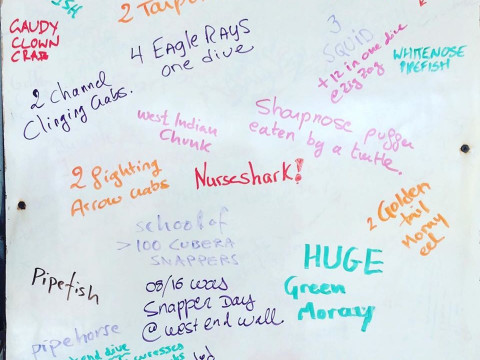 2 Tarpo
GAUDY
CLOWN
CRAB
4 EAGLE RAYS
one dive
3
SQUID
+12 in one dive
@ zig zag
WHITENOSE
PIPEFISH
2 Channel
Clinging Crabs.
West Indian
Chunk
Sharpnose puffer
eaten by a turtle.
2 fighting
Arrow crabs
Nurseshark!
2 Golden
tail
Moray
eel
school of
>100 CUBERA
SNAPPERS
HUGE
Green
Moray
Pipefish
08/16 was
Snapper Day
@ west end wall
pipehorse
dive